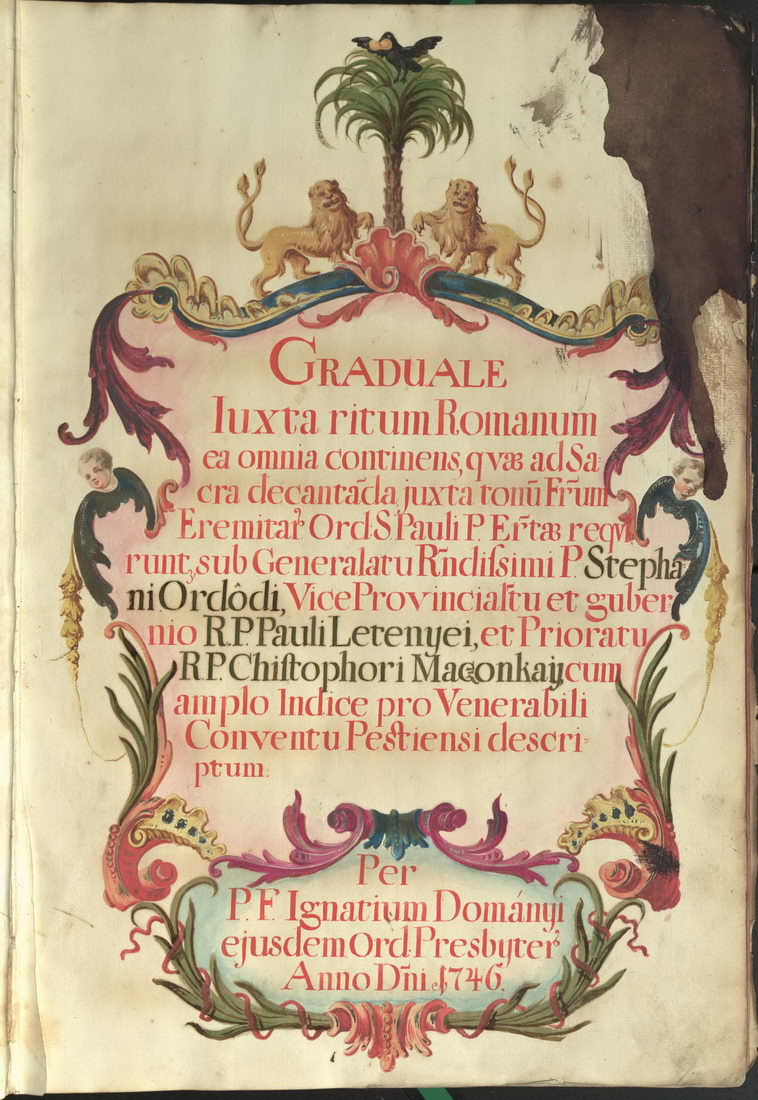 GRADUALE
Iuxta ritum Romanum
ea omnia continens, qvæ ad Sa-
cra decantãda juxta tonũ Fr̃um
Eremitar̃ Ord: S. Pauli P. Er̃tæ reqvi
runt, sub Generalatu Rñdiſsimi P. Stepha
ni Ordôdi, Vice Provincialtu et guber-
nio R.P. Pauli Letenyei, et Prioratu
R.P. Chiſtophori Maconkaij cum
amplo Indice pro Venerabili
Conventu Peſtiensi descri-
ptum.
Per
P. F. Ignatium Dományi
ejusdem Ord: Presbyter̃
Anno Dñi 1746.